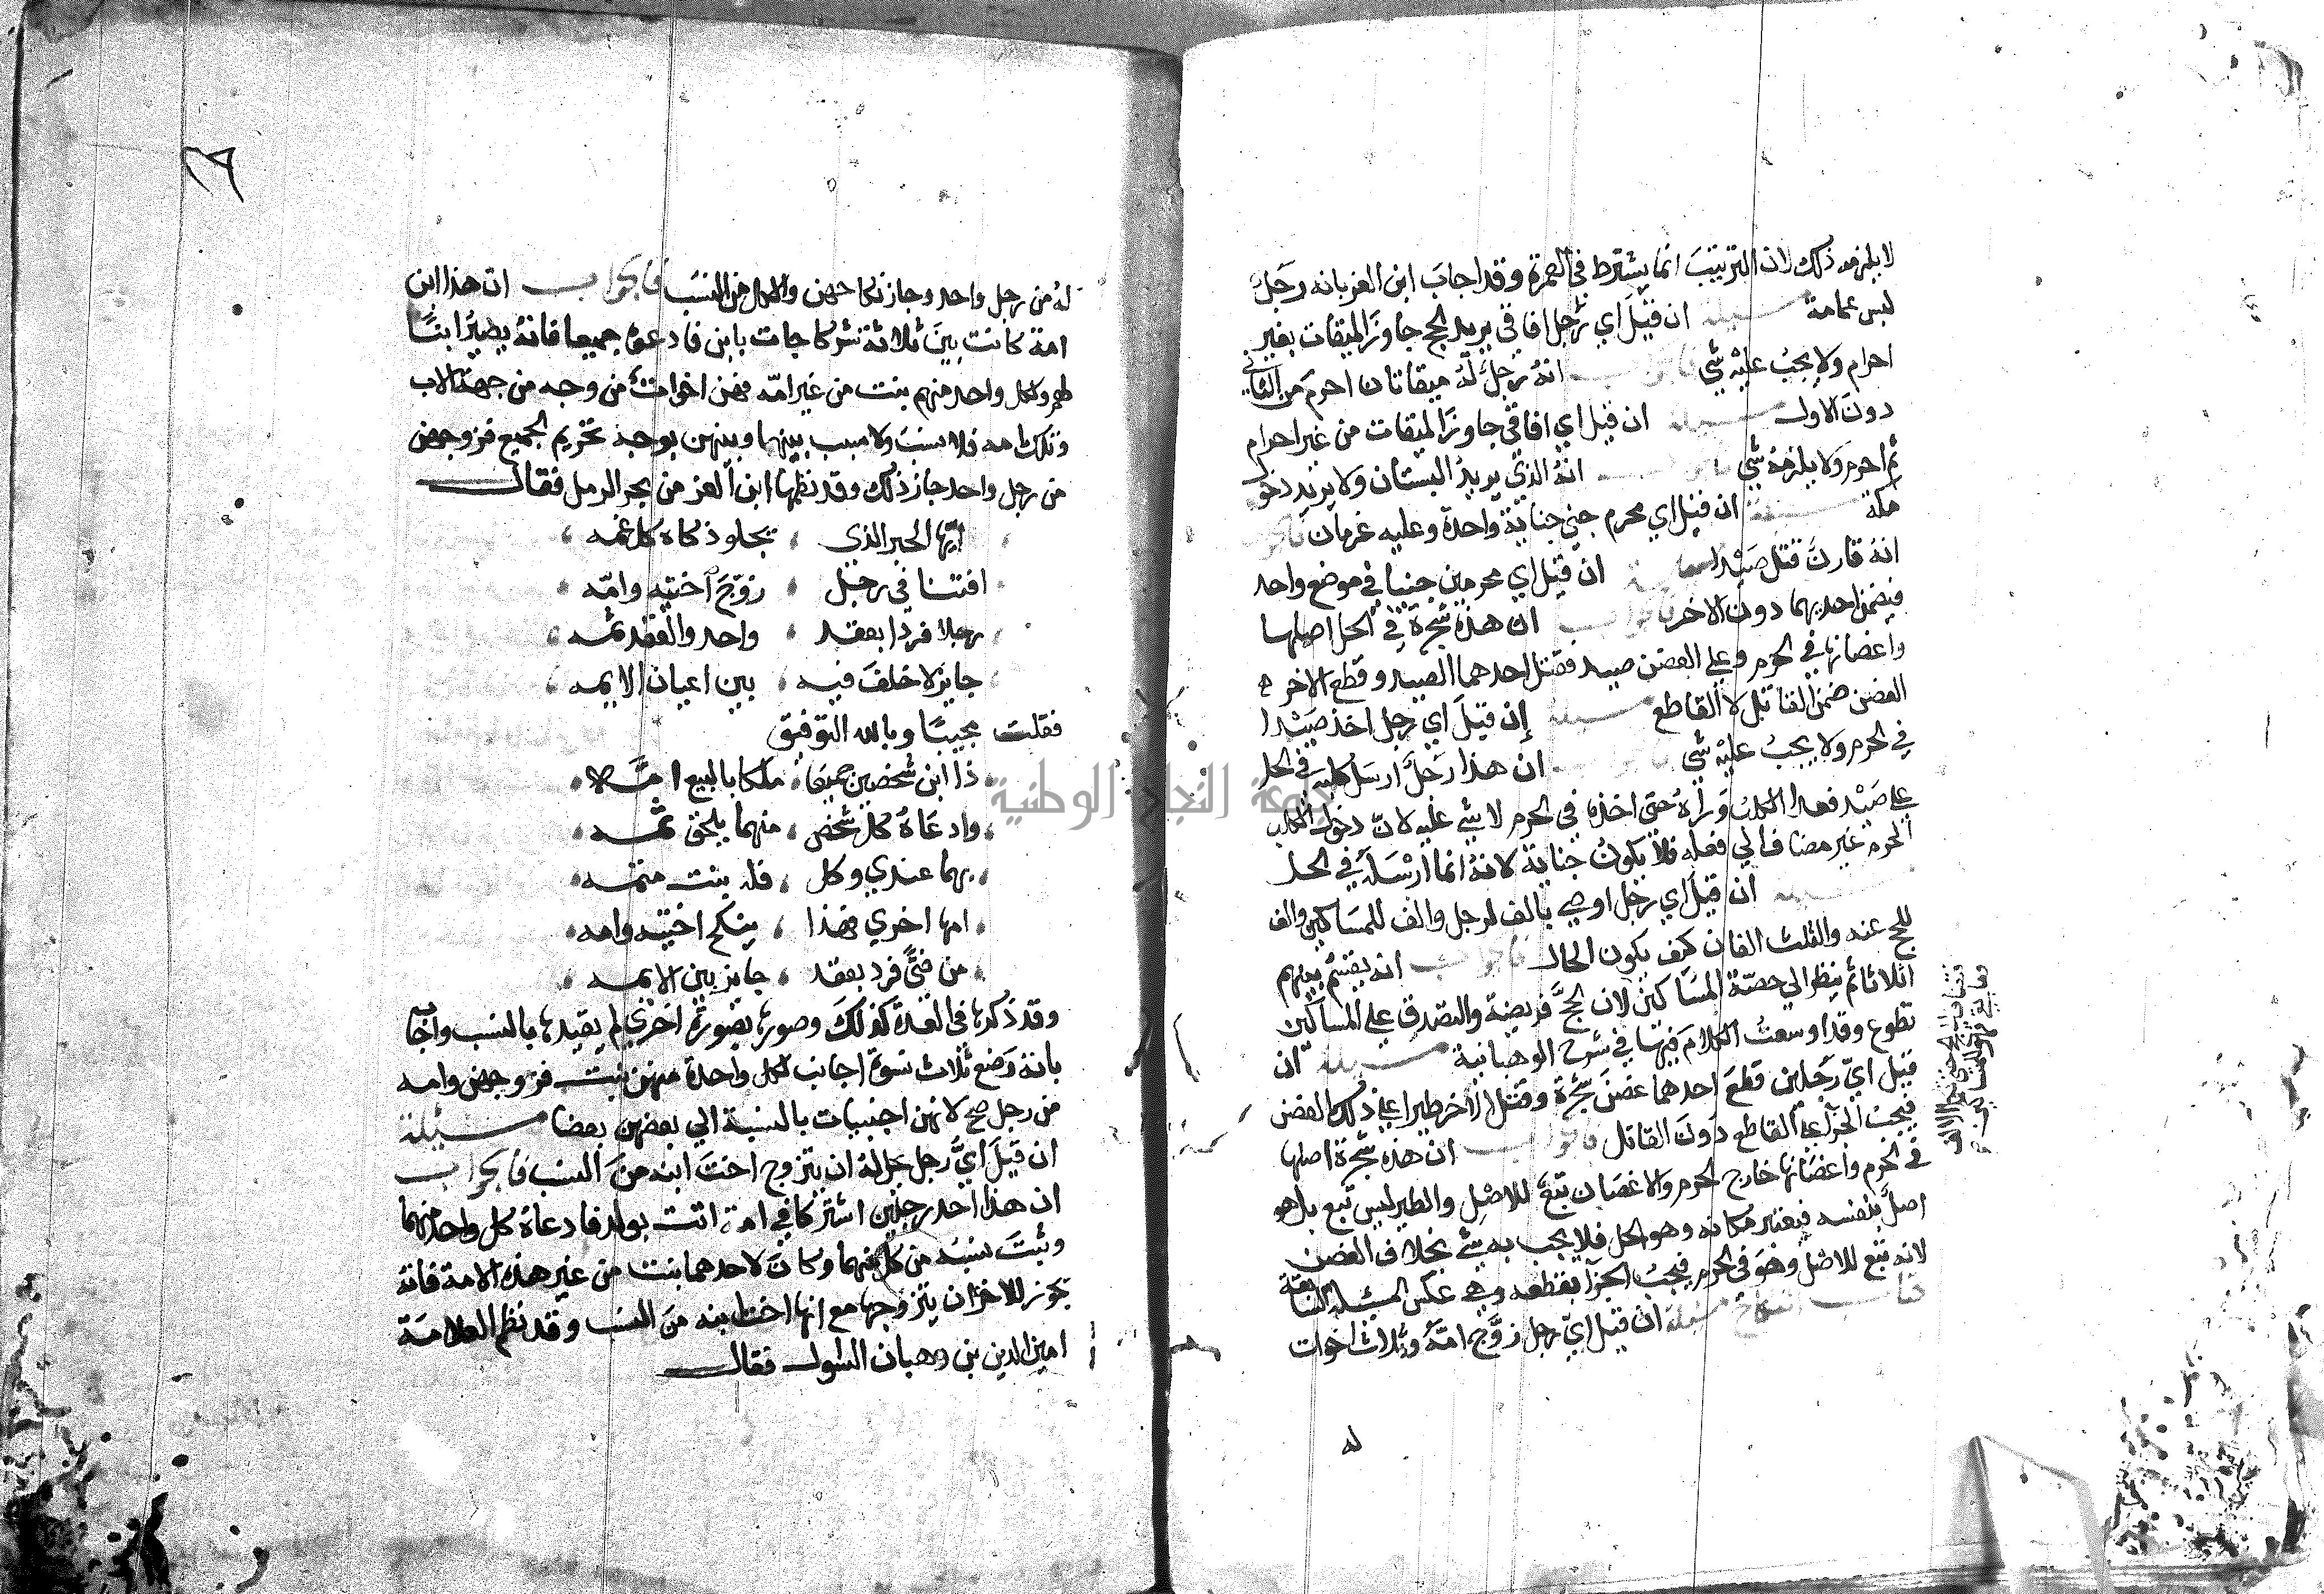 لا يلزمه ذلك لان الترتيب انما يشترط في العمرة وقد اجاب ابن العز بانه رجل
لبس عمامة مسيلة ان قيل اي رجل افاقي يريد الحج جاوز الميقات بغير
احرام ولا يجب عليه شي فالجواب انه رجل له ميقاتان احرم من الثاني
دون الاول مسيلة ان قيل اي افاقي جاوز الميقات من غير احرام
ثم احرم ولا يلزمه شي فالجواب انه الذي يريد البستان ولا يريد دخول
مكة مسيلة ان قيل اي محرم جني جناية واحدة وعليه غرمان فالجواب
انه قارن قتل صيدا مسيلة ان قيل اي محرمين جنيا في موضع واحد
فيضمن احديهما دون الاخر فالجواب ان هذه شجرة في الحل اصلها
واغصانها في الحرم وعلي الغصن صيد فقتل احدهما الصيد وقطع الاخر
الغصن ضمن القاتل لا القاطع مسيلة إن قيل اي رجل اخذ صيدا
في الحرم ولا يجب عليه شي فالجواب ان هذا رجل ارسل كلبه في الحل
علي صيد فعدا الكلب وراه حتى اخذه في الحرم لا شي عليه لان دخول الكلب
الحرم غير مضاف الي فعله فلا يكون جناية لانه انما ارسله في الحل
مسيلة ان قيل اي رجل اوصي بالف لرجل والف للمساكين والف
للحج عنه والثلث الفان كيف يكون الحال فالجواب انه يقسم بينهم
اثلاثا ثم ينظر الي حصة المساكين لان الحج فريضة والتصدق علي المساكين
تطوع وقد اوسعت الكلام فيها في شرح الوهبانية مسيلة ان
قيل اي رجلين قطع احدهما غصن شجرة وقتل الاخر طيرا علي ذلك الغصن
فيجب الجزآ علي القاطع دون القاتل فالجواب ان هذه شجرة اصلها
في الحرم واغصانها خارج الحرم والاغصان تبع للاصل والطير ليس تبع بل هو
اصل بنفسه فيعتبر مكانه وهو الحل فلا يجب به شي بخلاف الغصن
لانه تبع للاصل وهو في الحرم فيجب الجزآ بقطعه وهي عكس المسئلة السابقة
كتاب النكاح مسيلة ان قيل اي رجل زوج امه وثلاث اخوات
له
له من رجل واحد وجاز نكاحهن والكل من النسب فالجواب ان هذا ابن
امة كانت بين ثلاثة شركا جات بابن فادعوه جميعا فانه يصير ابنا
لهم ولكل واحد منهم بنت من غير امه فهن اخواته من وجه من جهة الاب
وتلك امه فلا نسب ولا سبب بينهما وبينهن يوجد تحريم الجميع فزوجهن
من رجل واحد جاز ذلك وقد نظمها ابن العز من بحر الرمل فقال
ايها الحبر الذي ، يجلو ذكاه كل غمه
افتنا في رجل ، زوج اختيه وامه
رجلا فردا بعقد ، واحد والعقد ثمه
جايز لا خلف فيه ، بين اعيان الايمه
فقلت مجيبا وبالله التوفيق
ذا ابن شخصين جميعا ، ملكا بالبيع امه
وادعاه كل شخص ، منهما يلحق ثمه
بهما عندي وكل ، فله بنت
امها اخري فهذا ، ينكح اختيه وامه
من فتى فرد بعقد ، جايز بين الايمه
وقد ذكرها في العدة كذلك وصورها بصورة اخري لم يقيدها بالنسب واجاب
بانه رضع ثلاث نسوة اجانب لكل واحدة منهن بنت فزوجهن وامه
من رجل صح لانهن اجنبيات بالنسبة الي بعضهن بعضا مسيلة
ان قيل اي رجل يجوز له ان يتزوج اخت ابنه من النسب فالجواب
ان هذا احد رجلين اشتركا في امة اتت بولد فادعاه كل واحد منهما
وثبت نسبه من كل منهما وكان لاحدهما بنت من غير هذه الامة فانه
يجوز للاخر ان يتزوجها مع انها اخت ابنه من النسب وقد نظم العلامة
امين الدين بن وهبان السوال فقال
جامعة النجاح الوطنية